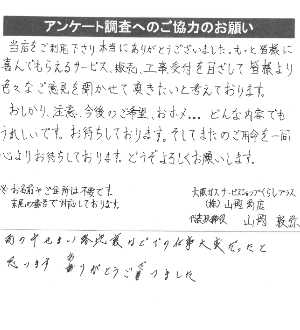 アンケート調査へのご協力のお願い
当店をご利用下さり本当にありがとうございました。もっと皆様に
喜んでもらえるサービス、販売、工事受付を目ざして皆様より
色々なご意見を聞かせて頂きたいと考えております。
おしかり、注意、今後のご希望、おホメ… どんな内容でも
うれしいです。お待ちしております。そしてまたのご用命を一同
心よりお待ちしております。どうぞよろしくお願いします。
※お名前やご住所は不要です。
末尾の番号で対応しております。
大阪ガスサービスショップくらしプラス
(株)山岡商店
代表取締役 山岡
せまい
仕事大変だったと
思います ありがとうございました